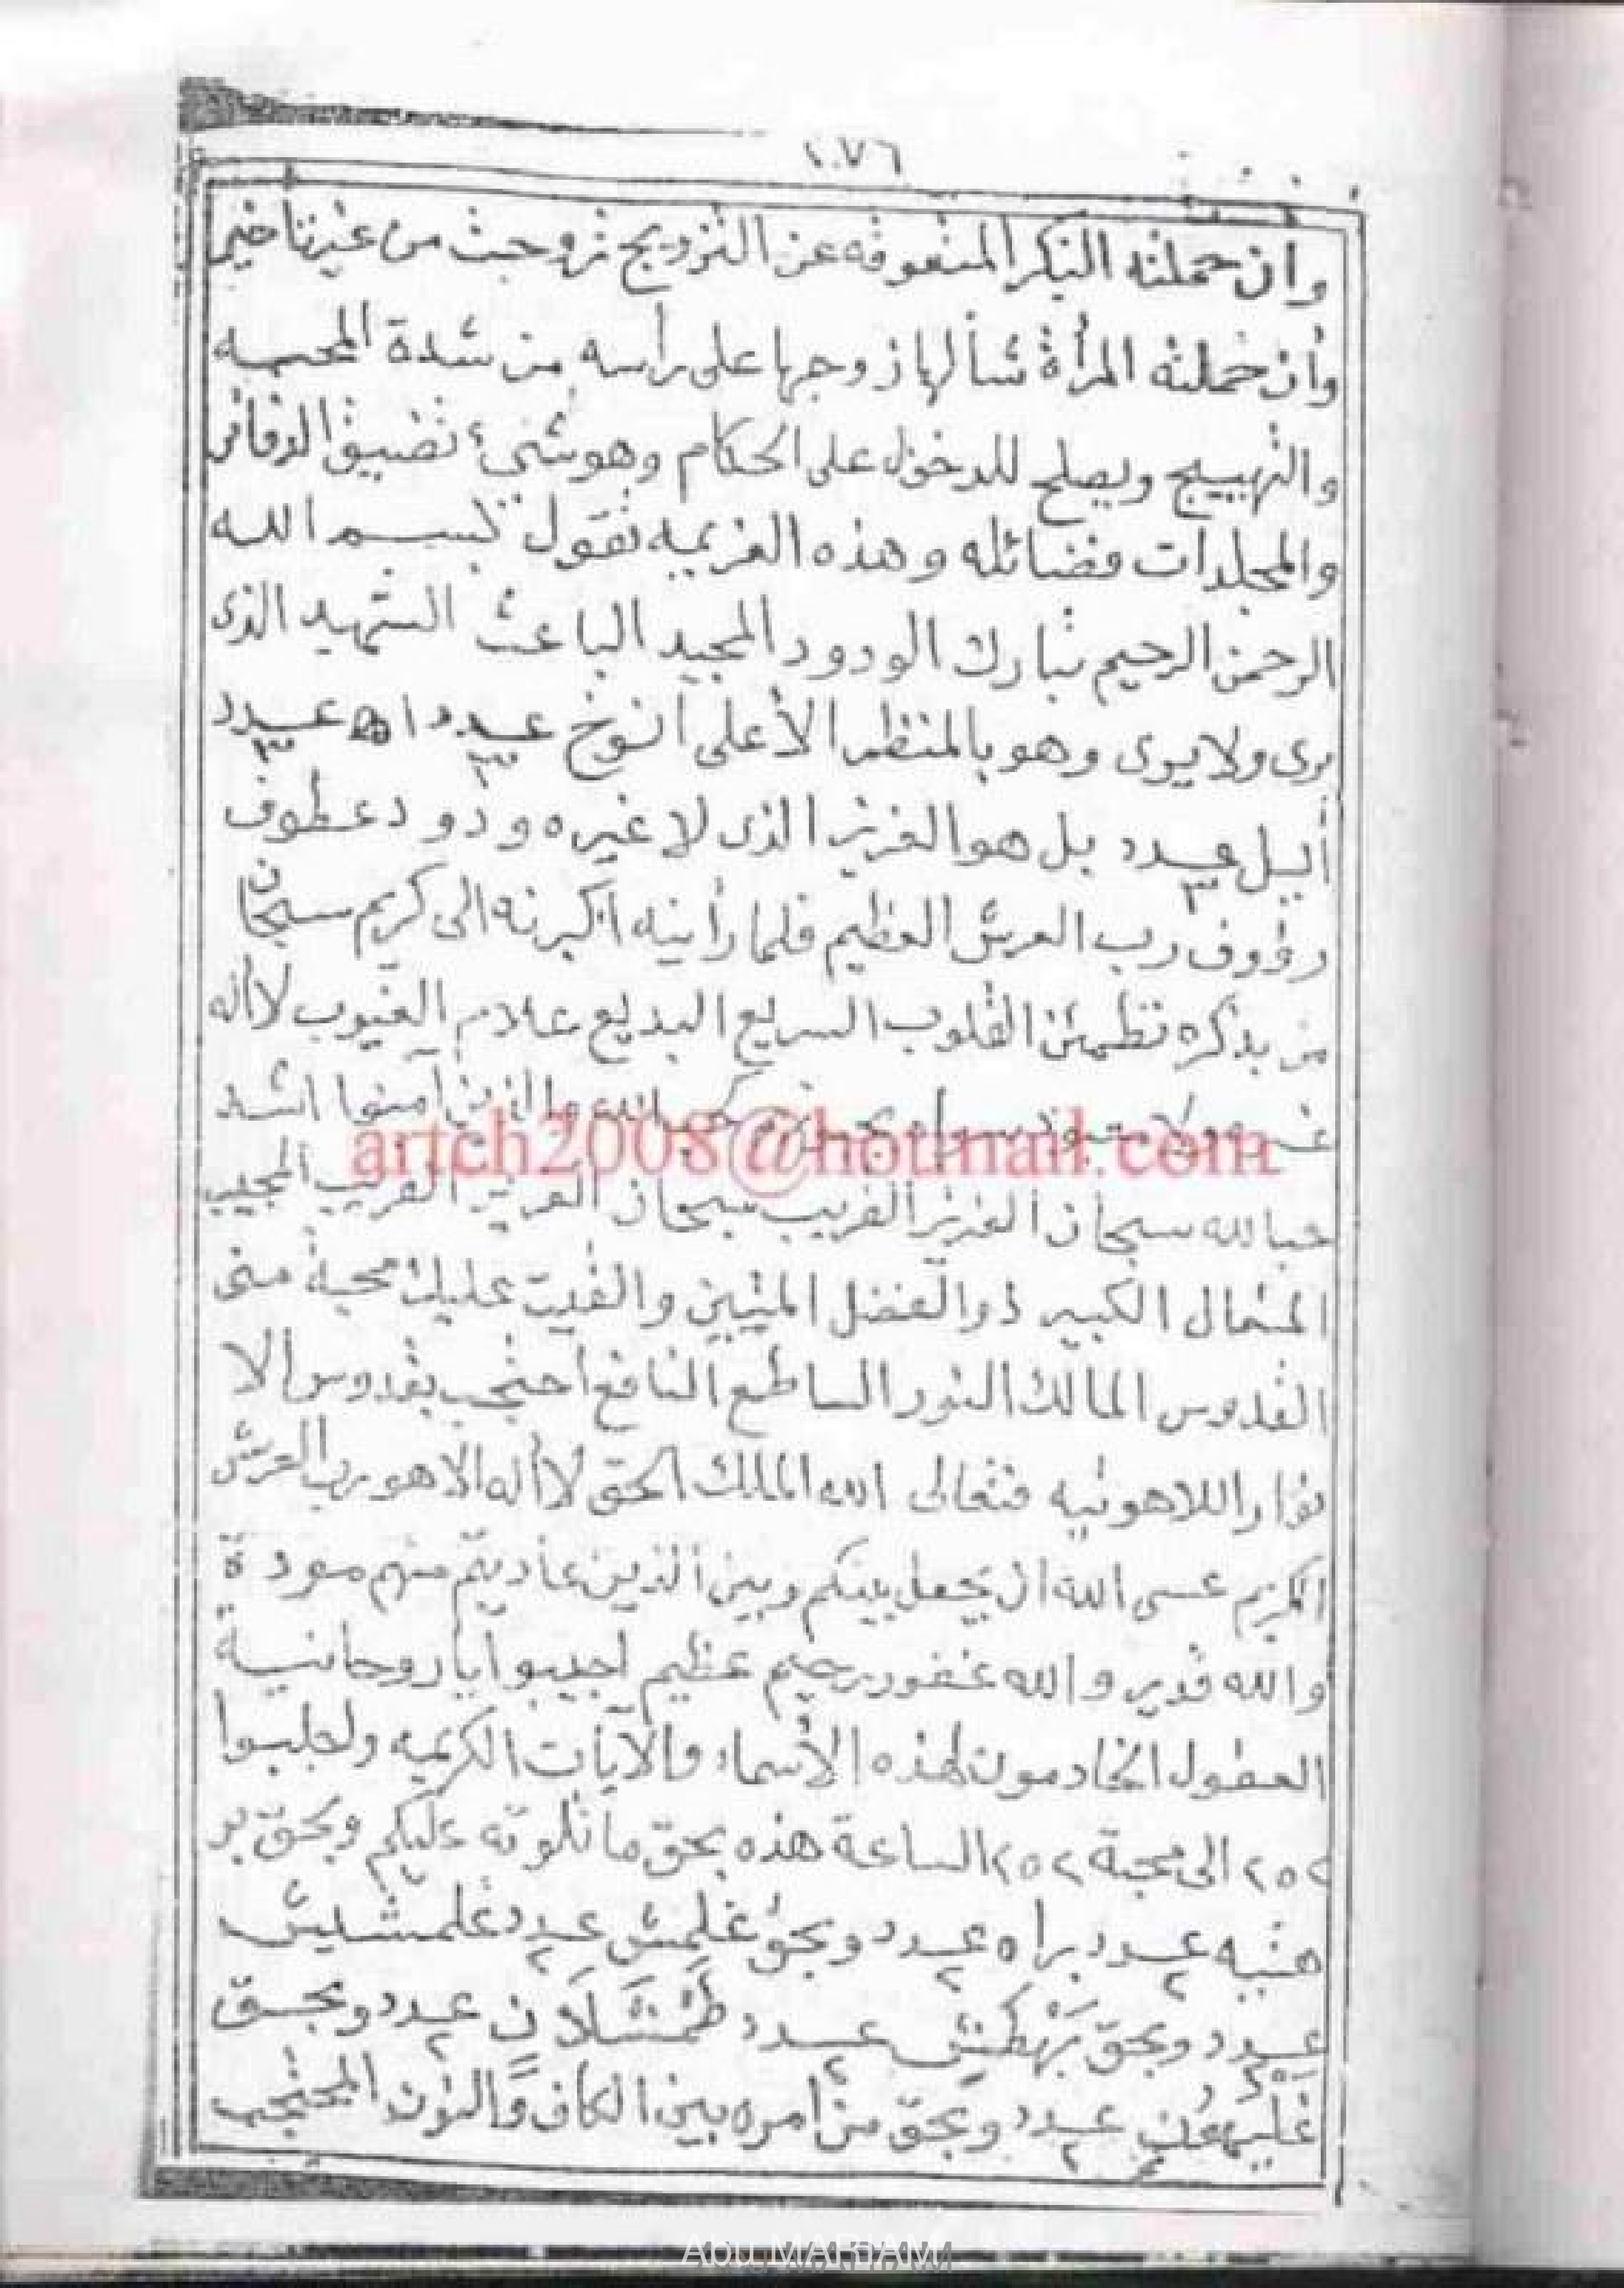 ١٠٧٦
وان حملته البكر المنعوقه عن التزويج تزوجت من غير تاخير
وأن حملته المرأة شالها زوجها على رأسه من شدة المحبه
والتهييج ويصلح للدخول على الحكام وهو شىء تضيق الدفاتر
والمجلدات فضائله وهذه العزيمه تقول بسم الله
الرحمن الرحيم تبارك الودود المجيد الباعث الشهيد الذى
يرى ولا يرى وهو بالمنظر الأعلى انوخ عدد ٣ اه عدد ٣
أيل عدد ٣ بل هو العزيز الذى لا غيره ودود عطوف
رؤوف رب العرش العظيم فلما رأينه أكبرنه الى كريم سبحان
من بذكره تطمئن القلوب السريع البديع علام الغيوب لا أله
غيره ولا معبود سواه يحبونهم كحب الله والذين آمنوا اشد
حبا لله سبحان العزيز القريب سبحان العزيز القريب المجيب
المتعال الكبير ذو الفضل المتين والقيت عليك محبة منى
القدوس المالك النور الساطع النافع احتجب بقدوس الا
نوار اللاهوتيه فتعالى الله الملك الحق لا أله الا هو رب العرش
الكريم عسى الله ان يجعل بينكم وبين الذين عاديتم منهم مودة
والله قدير والله غفور رحيم عظيم اجيبوا ايا روحانية
العطول الخادمون لهذه الأسماء والآيات الكريمه واجلبوا
٢٥٢ الى محبة ٢٥٢ الساعة هذه بحق ما تلوته عليكم وبحق بر
هتيه عدد ٢ براه عدد ٢ وبحق غلمش عدد ٢ غلمشيش
عدد ٢ وبحق بَرْهَطَش عدد ٢ طَمْشَلَان عدد ٢ وبحق
غليهعن عدد ٢ وبحق من أمره بين الكاف والنون المحتجب
artch2008@hotmail.com
Abu MARIAM